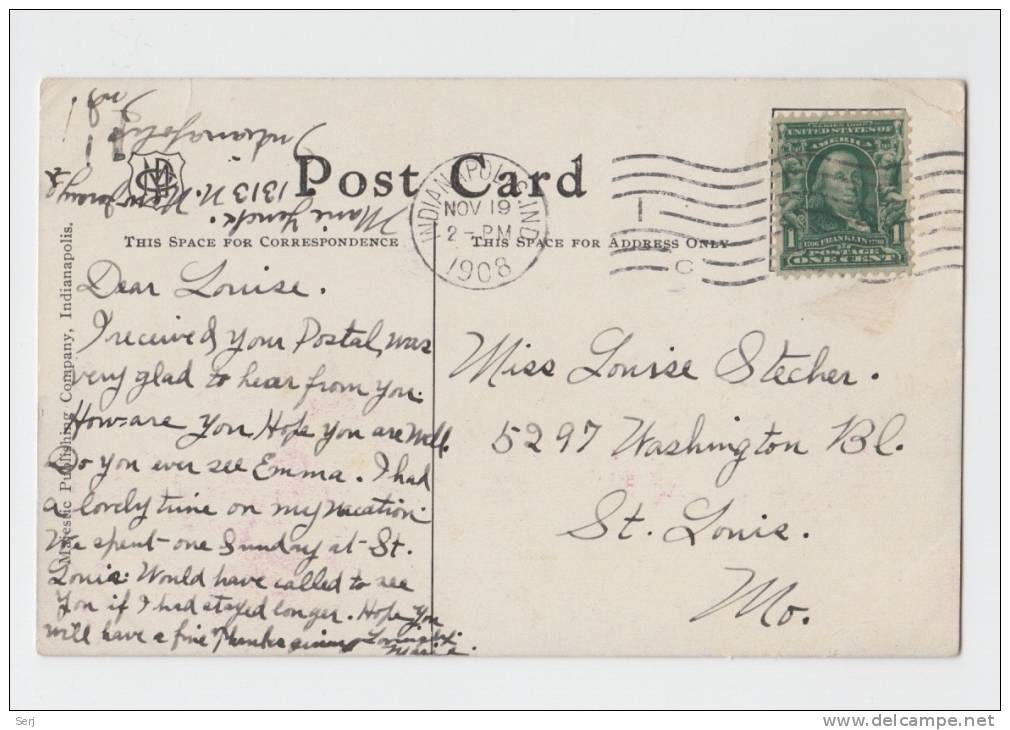 Indianapolis
Ind!
1313 N.
Marie
Post Card
THIS SPACE FOR CORRESPONDENCE
THIS SPACE FOR ADDRESS ONLY
INDIANAPOLIS, IND.
NOV 19
2 - PM
1908
1
C
SERIES 1902
UNITED STATES OF
AMERICA
1 1
1706 FRANKLIN 1790
POSTAGE
ONE CENT
Majestic Publishing Company, Indianapolis.
Dear Louise.
I received your Postal, was
very glad to hear from you.
How are you Hope you are well.
Do you ever see Emma. I had
a lovely time on my vacation
We spent one Sunday at St.
Louis. Would have called to see
You if I had stayed longer. Hope you
will have a fine Thanksgiving Lovingly
Marie.
Miss Louise Stecher.
5297 Washington Bl.
St. Louis.
Mo.
Serj
www.delcampe.net